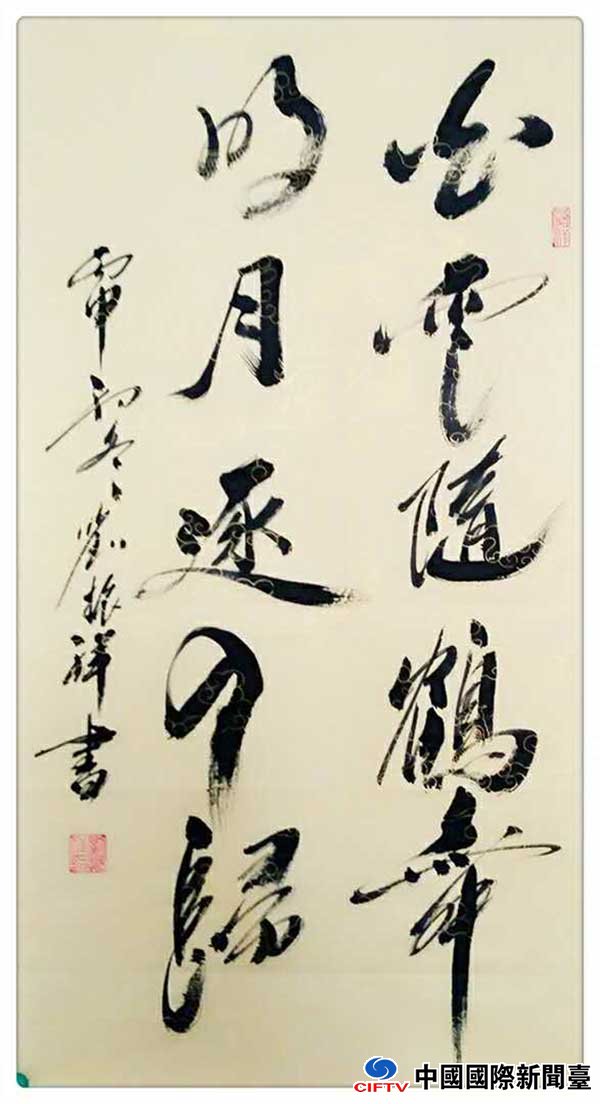 白雲隨鶴舞
明月逐歸
丙申初冬劉振祥書
CIFTV 中國國際新聞臺